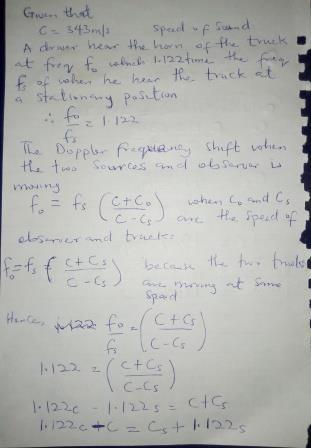 Given that
C = 343m/s Speed of Sound
A driver hear the horn of the truck
at freq fo which 1.122 time the freq
fs of when he hear the truck at
a stationary position
∴ fo/fs = 1.122
The Doppler frequency shift when
the two sources and observer is
moving
fo = fs (C+Co / C-Cs) when Co and Cs
are the speed of
observer and trucks
fo = fs (C+Cs / C-Cs) because the two trucks
are moving at same
speed
Hence, fo/fs = (C+Cs / C-Cs)
1.122 = (C+Cs / C-Cs)
1.122c - 1.122s = C+Cs
1.122c + C = Cs + 1.122s